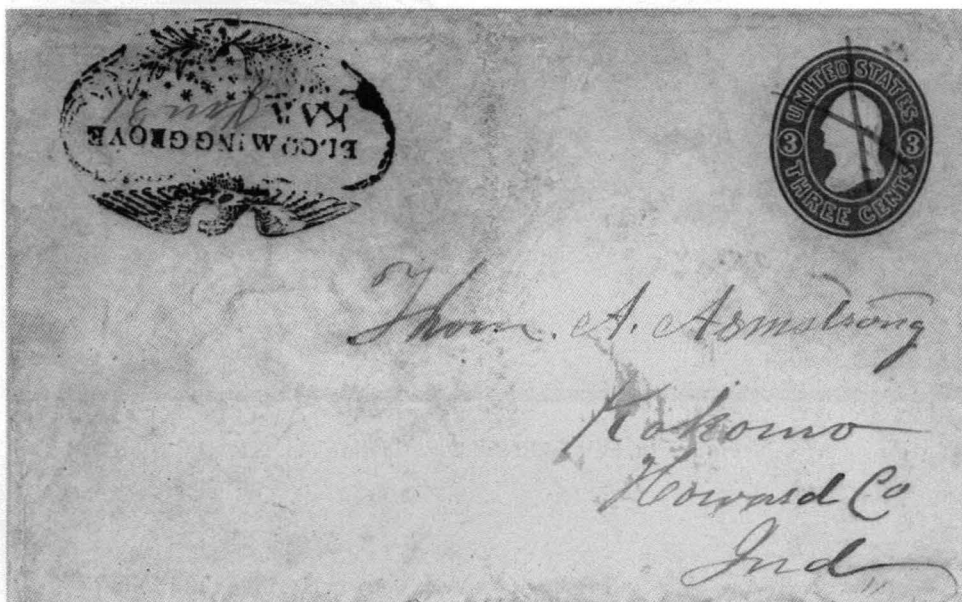 ELCOMING GROVE
Jan 31
UNITED STATES
3 3
THREE CENTS
Thom. A. Armstrong
Kokomo
Howard Co
Ind